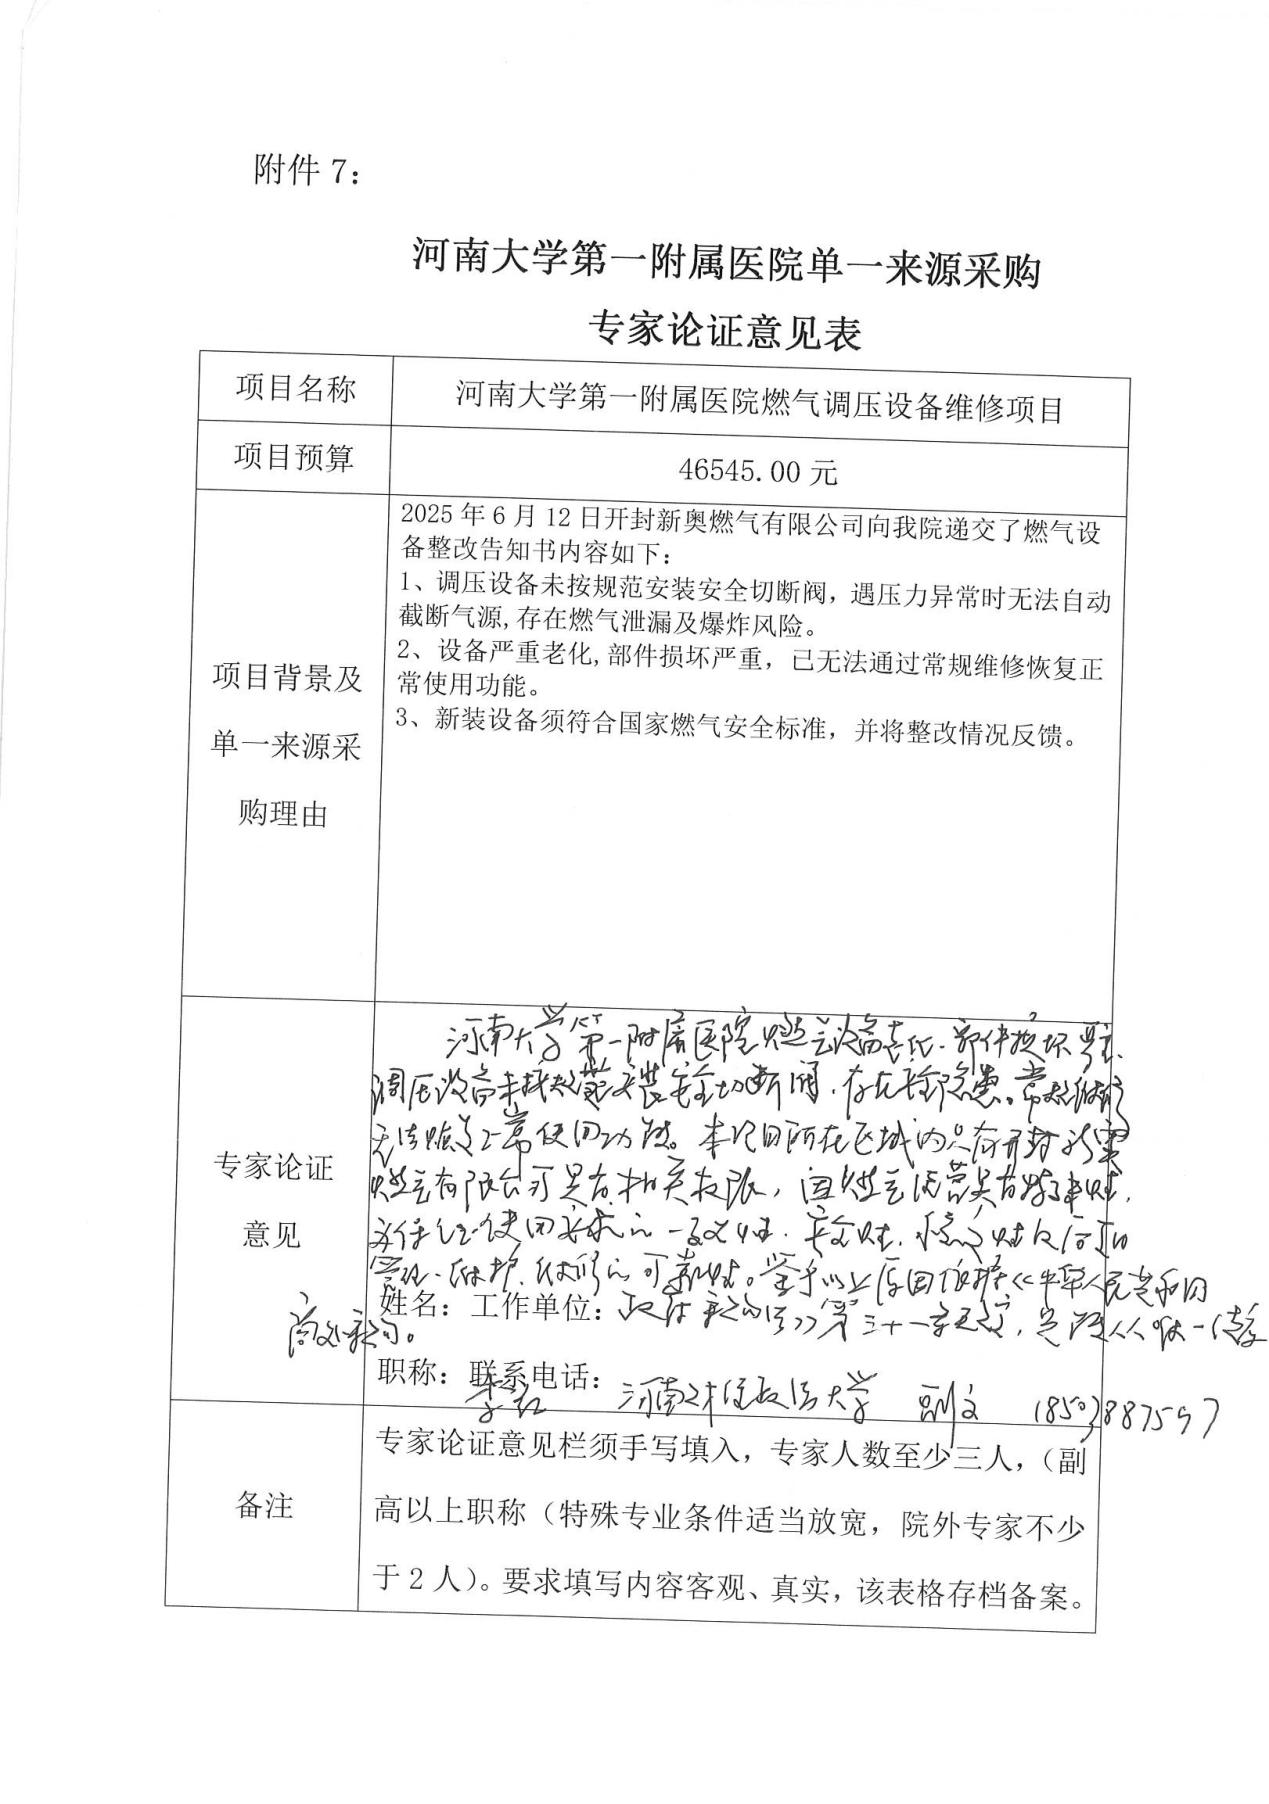 附件 7：
河南大学第一附属医院单一来源采购
专家论证意见表
项目名称
河南大学第一附属医院燃气调压设备维修项目
项目预算
46545.00 元
项目背景及
单一来源采
购理由
2025 年 6 月 12 日开封新奥燃气有限公司向我院递交了燃气设
备整改告知书内容如下：
1、调压设备未按规范安装安全切断阀，遇压力异常时无法自动
截断气源,存在燃气泄漏及爆炸风险。
2、设备严重老化,部件损坏严重，已无法通过常规维修恢复正
常使用功能。
3、新装设备须符合国家燃气安全标准，并将整改情况反馈。
专家论证
意见
河南大学第一附属医院燃气设备老化、部件损坏严重、
调压设备未按规范安装安全切断阀，存在安全隐患。常规维修
无法恢复正常使用功能。本项目所在区域内只有开封新奥
燃气有限公司具有相关权限，因燃气运营具有特殊性，
为保证使用要求的一致性、安全性、稳定性及后面的
管理、维护、维修的可靠性。鉴于以上原因依据《中华人民共和国
姓名：工作单位：
政府采购法》第三十一条之规定，
职称：联系电话：
李红 河南财经政法大学 副文 18503887597
备注
专家论证意见栏须手写填入，专家人数至少三人，（副
高以上职称（特殊专业条件适当放宽，院外专家不少
于 2 人）。要求填写内容客观、真实，该表格存档备案。